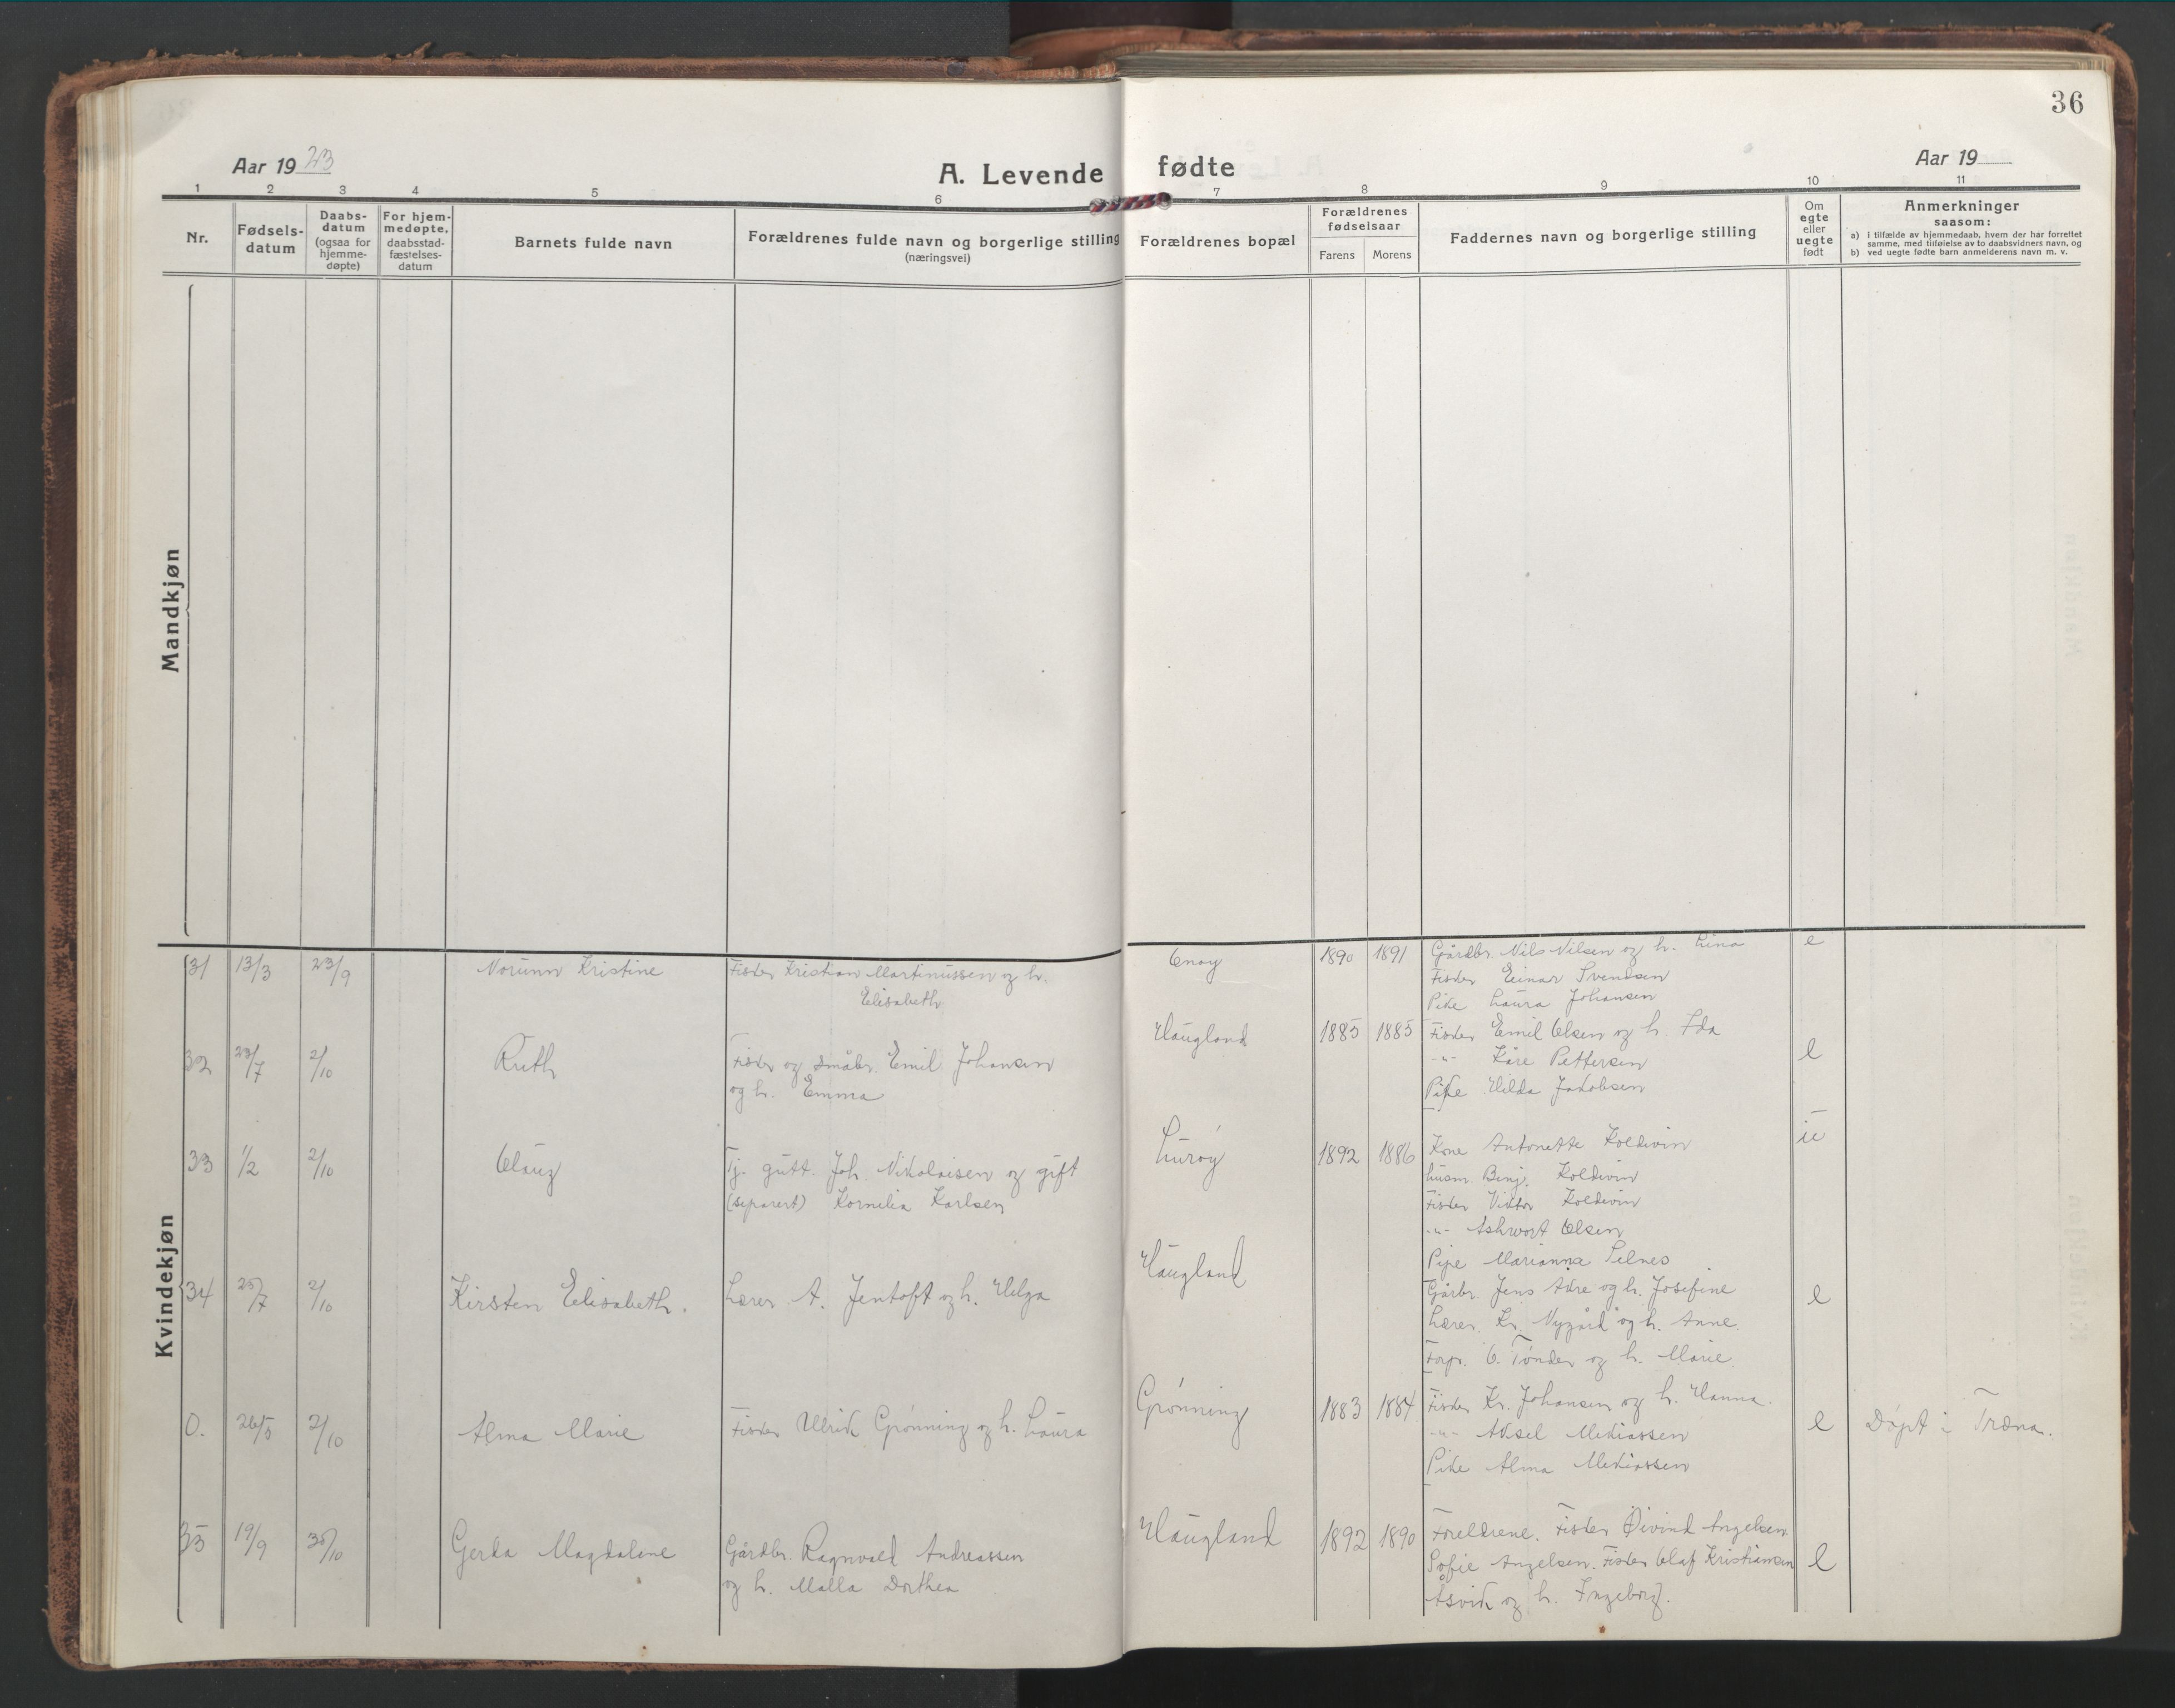 36
Aar 1923
A. Levende fødte
Aar 19
1 2 3 4 5 6 7 8 9 10 11
Nr.
Fødsels-
datum
Daabs-
datum
(ogsaa for
hjemme-
døpte)
For hjem-
medøpte,
daabsstad-
fæstelses-
datum
Barnets fulde navn
Forældrenes fulde navn og borgerlige stilling
(næringsvei)
Forældrenes bopæl
Forældrenes
fødselsaar
Farens Morens
Faddernes navn og borgerlige stilling
Om
egte
eller
uegte
født
Anmerkninger
saasom:
a) i tilfælde av hjemmedaab, hvem der har forrettet
samme, med tilføielse av to daabsvidners navn, og
b) ved uegte fødte barn anmelderens navn m. v.
Mandkjøn
Kvindekjøn
31 13/3 23/9 Norunn Kristine
Fisker Kristian Martinussen og h.
Elisabeth
1890 1891
Gårdbr. Nils Nilsen og h. Lina
Fisker Einar Svendsen
Pike Laura Johansen
e
32 23/7 2/10 Ruth
Fisker og småbr. Emil Johansen
og h. Emma
Haugland 1885 1885
Fisker Emil Olsen og h. Ida
-"- Kåre Pettersen
Pike Hilda Jakobsen
e
33 1/2 2/10 Olaug
Tj. gutt. Joh. Nikolaisen og gift
(separert) Kornelia Karlsen
Lurøy 1892 1886
Kone Antonette Koldevin
husm. Binj. Koldevin
Fisker Viktor Koldevin
-"- Ashwort Olsen
Pike Marianna Selnes
u
34 25/7 2/10 Kirsten Elisabeth.
Lærer A. Jentoft og h. Helga
Haugland
Gårbr. Jens Akre og h. Josefine
Lærer Kr. Nygård og h. Anne
Forp. O. Tønder og h. Marie.
e
0. 26/5 2/10 Alma Marie
Fisker Ulrik Grønning og h. Laura
Grønning 1883 1884
Fisker Kr. Johansen og h. Hanna.
-"- Aksel Mekiassen
Pike Alma Mekiassen
e
Døpt i Træna.
35 19/9 30/10 Gerda Magdaline
Gårdbr. Ragnvald Andreassen
og h. Malla Dorthea
Haugland 1892 1890
Foreldrene. Fisker Øivind Angelsen
Sofie Angelsen. Fisker Olaf Kristiansen
Åsvik og h. Ingeborg.
e